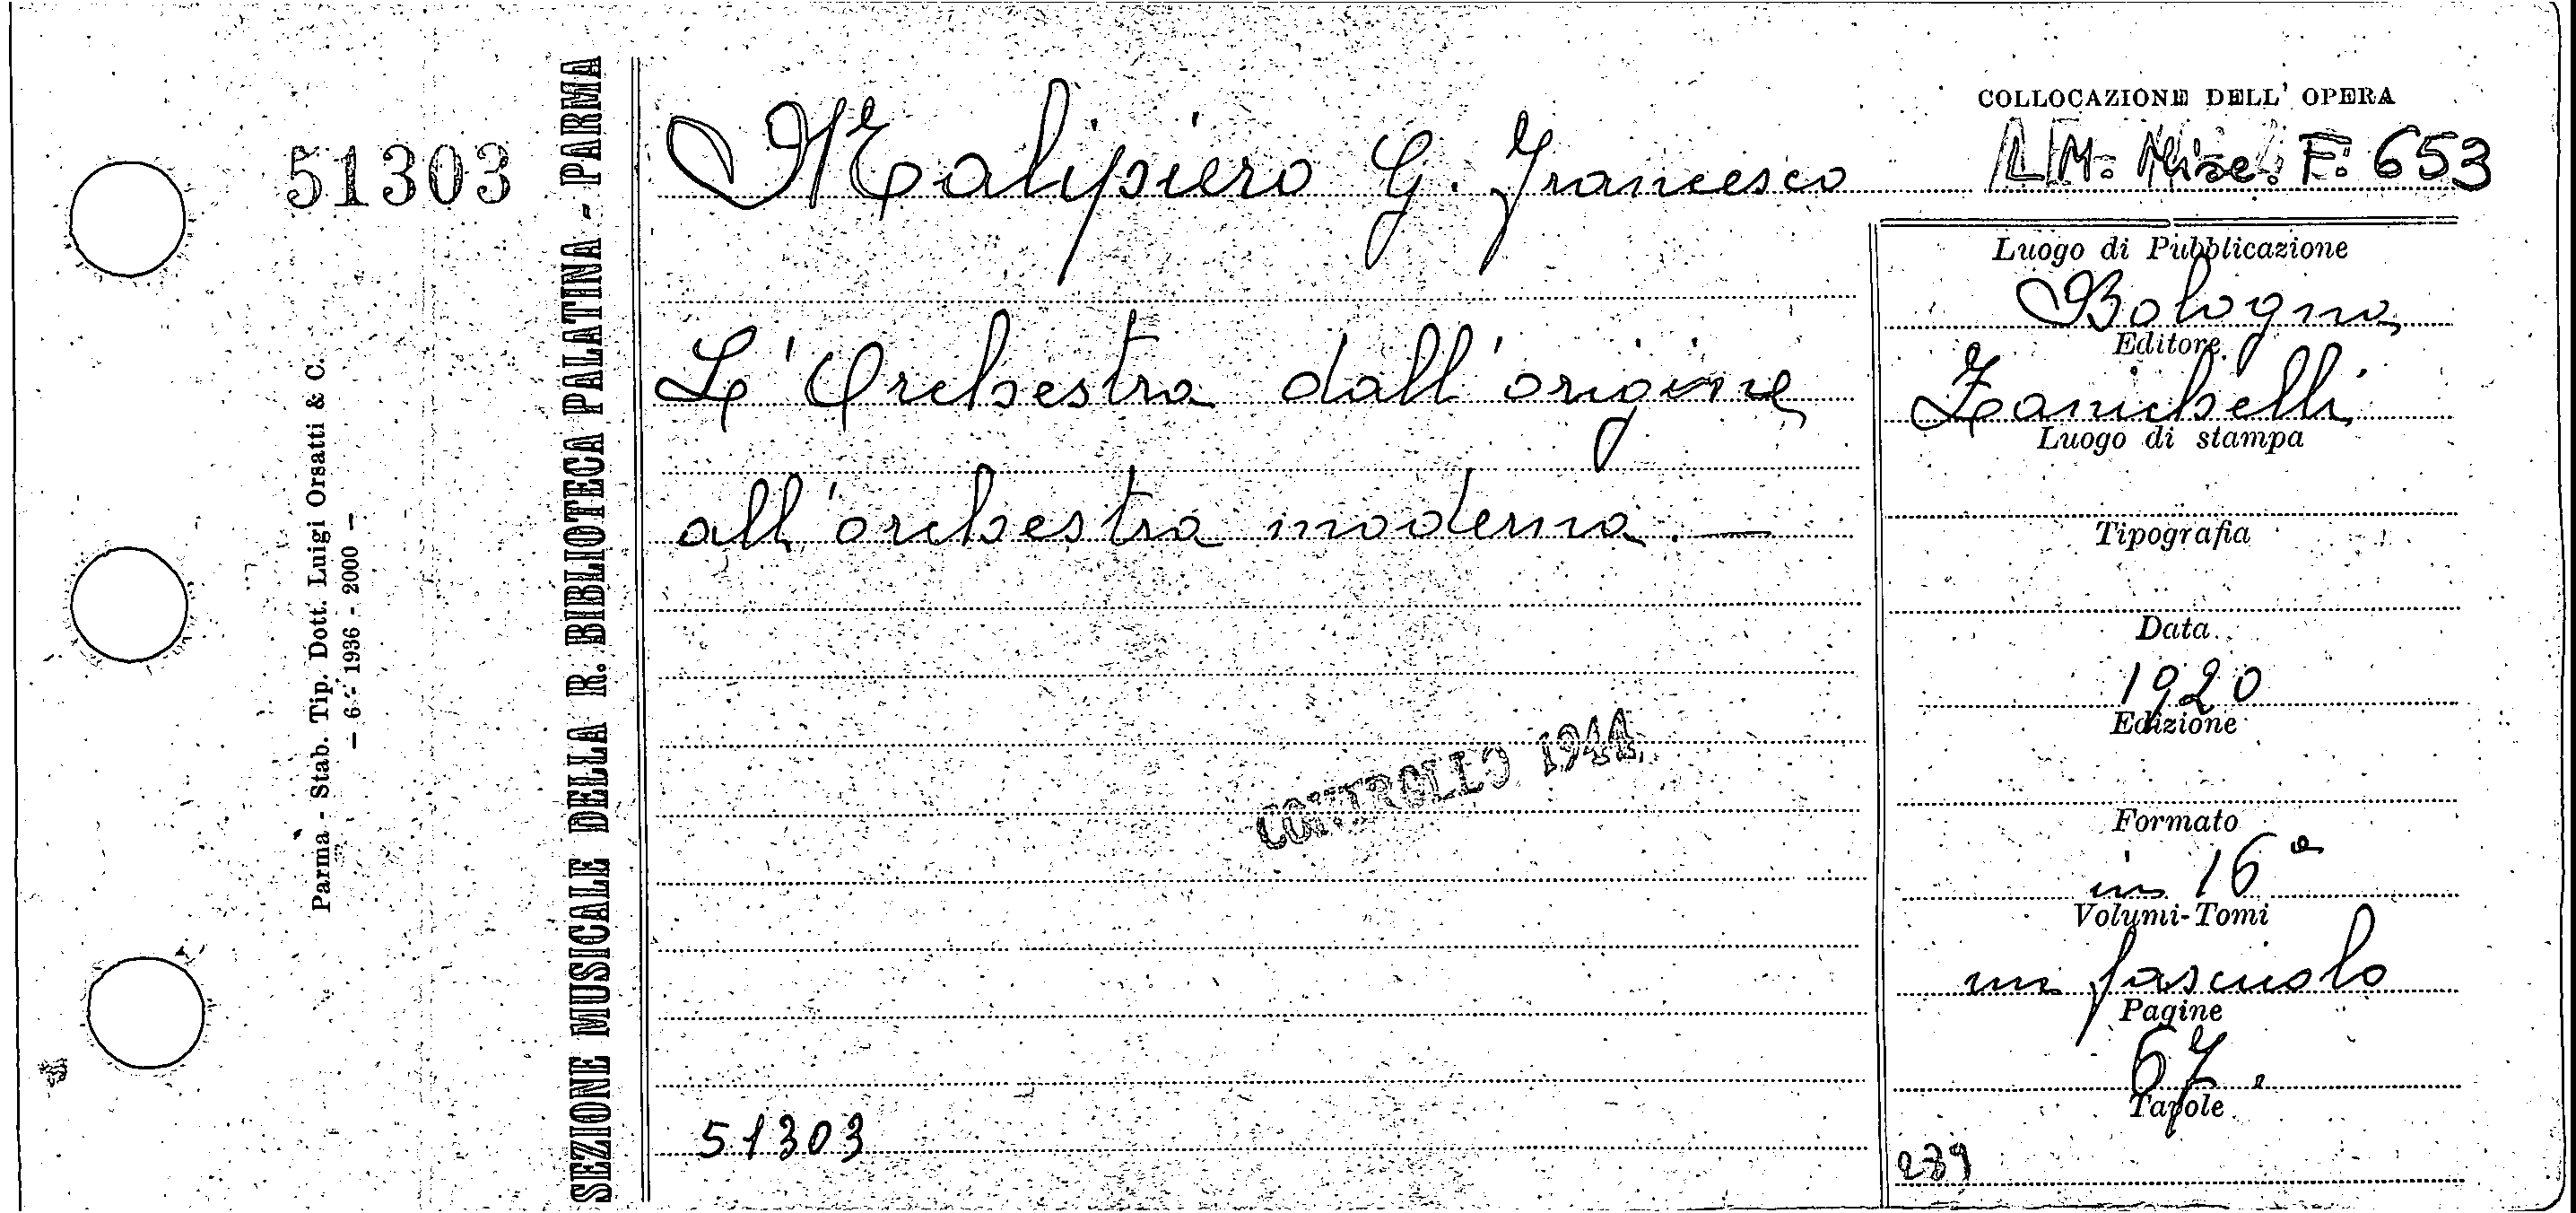 51303
Parma - Stab. Tip. Dott. Luigi Orsatti & C.
— 6 - 1936 - 2000 —
SEZIONE MUSICALE DELLA R. BIBLIOTECA PALATINA - PARMA
Malipiero G. Francesco
L'Orchestra dall'origine
all'orchestra moderna. —
CONTROLLO 1944
51303
COLLOCAZIONE DELL' OPERA
M. Misc. F. 653
Luogo di Pubblicazione
Bologna
Editore
Zanichelli
Luogo di stampa
Tipografia
Data
1920
Edizione
Formato
in 16°
Volumi-Tomi
un fascicolo
Pagine
67.
Tavole
239